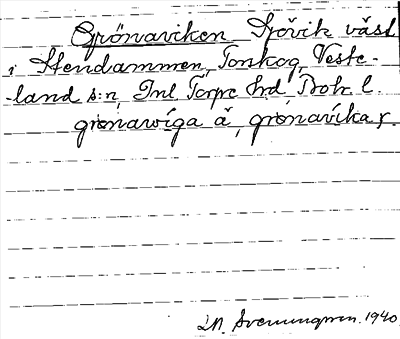 Grönaviken Sjövik väst
i Stendammen, Tonskog, Veste-
land s:n, Inl. Torpe hd, Boh. l.
grönavíga å, grönavíka f.
M. Svenungsson. 1940